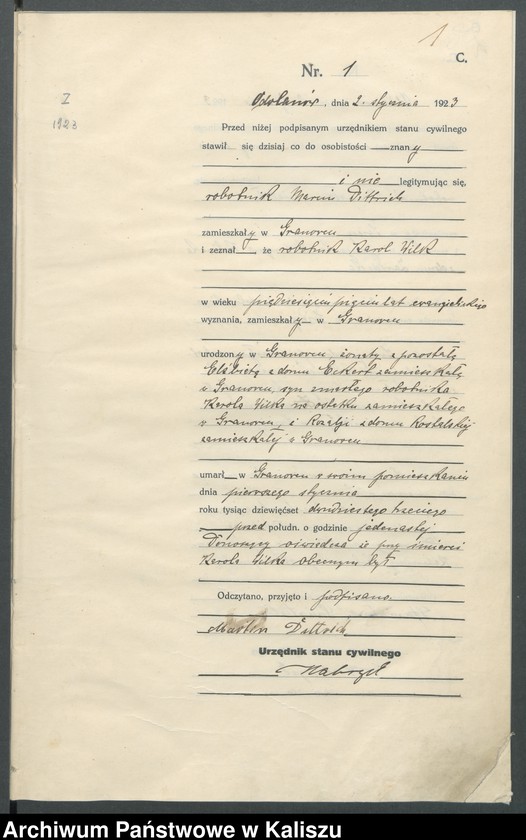 1
C.
Nr. 1
I
1923
Odolanów, dnia 2. stycznia 1923
Przed niżej podpisanym urzędnikiem stanu cywilnego
stawił się dzisiaj co do osobistości znany
i nie legitymując się,
robotnik Marcin Dittrich
zamieszkały w Granowcu
i zeznał że robotnik Karol Wilk
w wieku pięćdziesięciu pięciu lat ewangielickiego
wyznania, zamieszkały w Granowcu
urodzony w Granowcu, żonaty z pozostałą
Elżbietą z domu Eckert zamieszkałą
w Granowcu, syn zmarłego robotnika
Karola Wilka na ostatku zamieszkałego
w Granowcu, i Rozalji z domu
zamieszkałej w Granowcu
umarł w Granowcu w swoim pomieszkaniu
dnia pierwszego stycznia
roku tysiąc dziewięćset dwudziestego trzeciego
przed połudn. o godzinie jedenastej
Donoszący oświadcza iż przy śmierci
Karola Wilka obecnym był
Odczytano, przyjęto i podpisano.
Martin Dittrich
Urzędnik stanu cywilnego
Archiwum Państwowe w Kaliszu